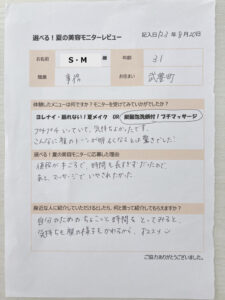 選べる！夏の美容モニターレビュー
記入日 R3年8月20日
お名前 S・M 様 年齢 31
職業 事務 お住まい 武豊町
体験したメニューは何ですか？モニターを受けてみていかがでしたか？
ヨレナイ・崩れない！夏メイク OR 炭酸泡洗顔付！プチマッサージ
プチプチしていて、気持ちよかったです。
こんなに顔のトーンが明るくなるとは驚きでした！
選べる！夏の美容モニターに応募した理由
値段が手ごろで、時間も長すぎずだったので
あと、マッサージでいやされたかった
身近な人に紹介していただけるとしたら、何と言って紹介してもらえますか？
自分のためのちょこっと時間をとってみると、
気持ちも顔の様子もかわるから、おススメ
ご協力ありがとうございました。